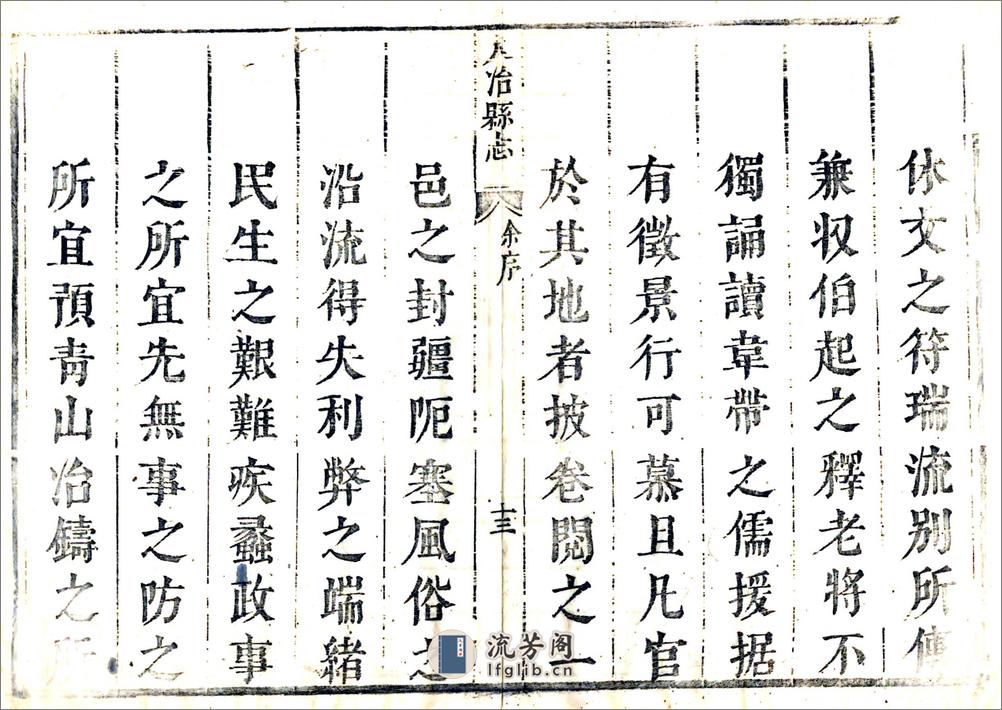 休文之符瑞流別所傳
兼収伯起之釋老將不
獨誦讀韋帶之儒援据
有徵景行可慕且凡官
於其地者披卷閱之一
大冶縣志
余序
十三
邑之封疆阨塞風俗之
沿流得失利弊之端緒
民生之艱難疾蠡政事
之所宜先無事之防之
所宜預青山冶鑄之所
流芳阁
lfglib.cn